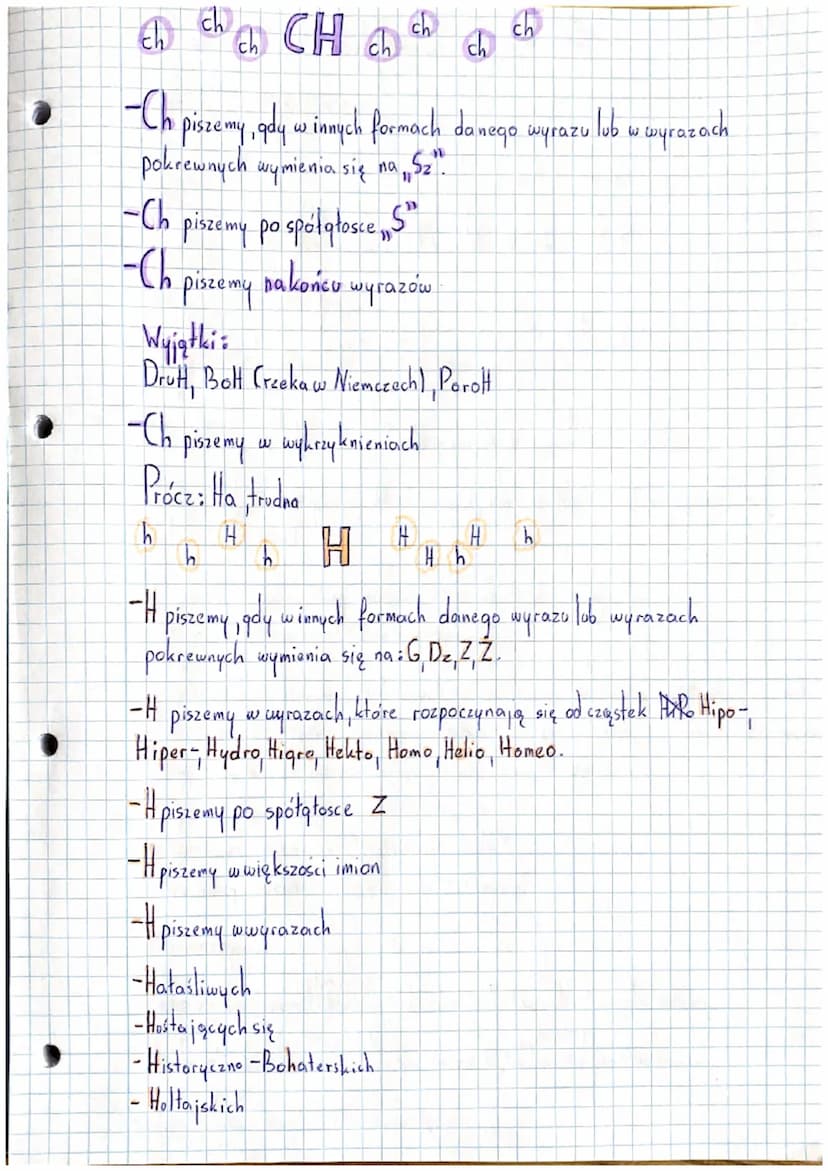 ch ch ch CH ch ch ch ch
-Ch piszemy, gdy w innych formach danego wyrazu lub w wyrazach
pokrewnych wymienia się na „Sz”.
-Ch piszemy po spółgłosce „S”
-Ch piszemy na końcu wyrazów
Wyjątki:
DruH, BoH (rzeka w Niemczech), PoroH
-Ch piszemy w wykrzyknieniach
Prócz: Ha, trudna
h h H h H H H h H h
-H piszemy, gdy w innych formach danego wyrazu lub wyrazach
pokrewnych wymienia się na: G, Dz, Z, Ż.
-H piszemy w wyrazach, które rozpoczynają się od cząstek Hipo-,
Hiper-, Hydro, Higro, Hekto, Homo, Helio, Homeo.
-H piszemy po spółgłosce Z
-H piszemy w większości imion
-H piszemy w wyrazach
-Hałaśliwych
-Hołtających się
-Historyczno-Bohaterskich
-Holtajskich